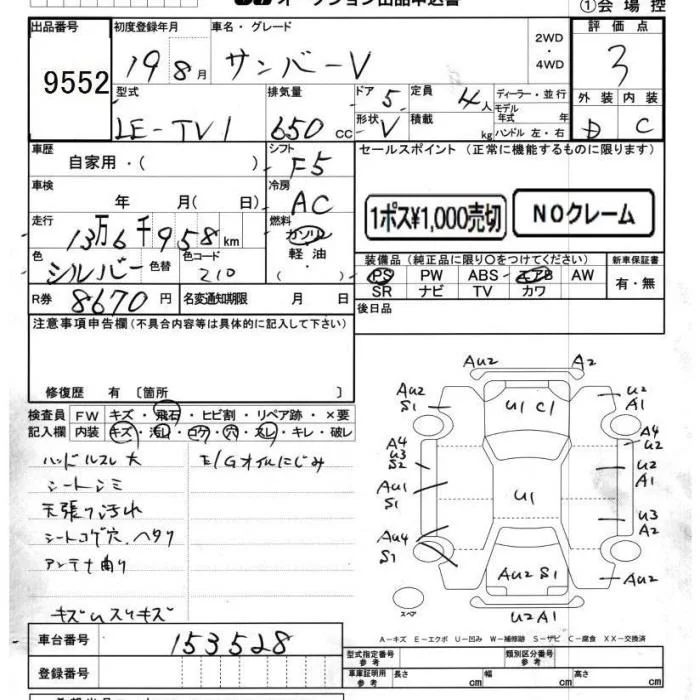 オークション出品申込書
①会場控
出品番号 初度登録年月 車名・グレード 2WD ・ 4WD 評価点
9552 19 8月 サンバーV 3
型式 排気量 ドア 5 定員 4人 ディーラー・並行 外装 内装
LE-TV1 650 cc 形状 V 積載 kg モデル年式 年 ハンドル 左・右 D C
車歴 シフト セールスポイント (正常に機能するものに限ります)
自家用・( ) F5
車検 冷房
年 月( 日) AC 1ポス¥1,000売切 NOクレーム
走行 燃料
13万6千958km ガソリン
色 色替 色コード 軽油・ 装備品(純正品に限り〇をつけてください) 新車保証書
シルバー 210 ( ) PS PW ABS エアB AW 有・無
SR ナビ TV カワ
R券 8670円 名変通知期限 月 日 後日品
注意事項申告欄(不具合内容等は具体的に記入して下さい)
修復歴 有 〔箇所 〕
検査員 FW キズ・飛石・ヒビ割・リペア跡・×要
記入欄 内装 キズ・汚レ・コゲ・穴・スレ・キレ・破レ
ハンドルスレ大 E/Gオイルにじみ
シートシミ
天張り汚れ
シートコゲ穴、ヘタリ
アンテナ曲り
キズUスリキズ
AU2 A2
AU2 S1 U2 A1
U1 C1
A4 U3 S2 A4 U2
U2 A1
AU1 S1 U1
U3 A2
AU4 S1
AU2 S1 AU2
スペア U2A1
A-キズ E-エクボ U-凹み W-補修跡 S-サビ C-腐食 XX-交換済
車台番号 153528
型式指定番号 参考 類別区分番号 参考
登録番号 車庫証明用 参考 長さ cm 幅 cm 高さ cm